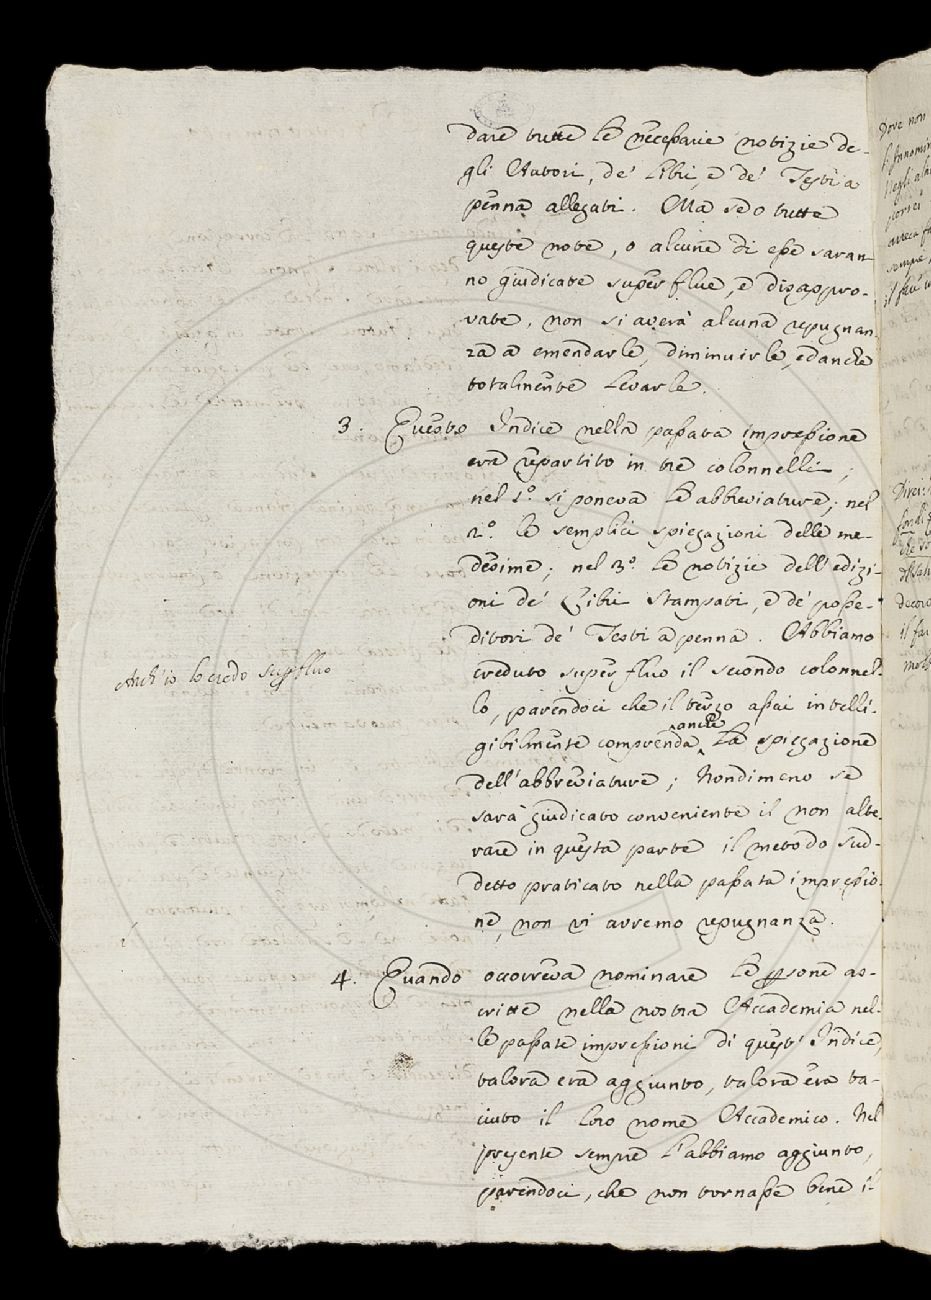 dare tutte le necessarie notizie de-
gli Autori, de' Libri, e de' Testi a
penna allegati. Ma se o tutte
queste note, o alcune di esse saran-
no giudicate superflue, e disappro-
vate, non si averà alcuna repugnan-
za a emendarle, diminuirle, ed anche
totalmente levarle.
3. Questo Indice nella passata impressione
era repartito in tre colonnelli;
nel 1.º si poneva le abbreviature; nel
2.º le semplici spiegazioni delle me-
desime; nel 3.º le notizie dell'edizi-
oni de' Libri stampati, e de' posse-
ditori de' Testi a penna. Abbiamo
creduto superfluo il secondo colonnel-
Anch'io lo credo superfluo
lo, parendoci che il terzo assai intelli-
anche
gibilmente comprenda la spiegazione
dell'abbreviature; Nondimeno se
sarà giudicato conveniente il non alte-
rare in questa parte il metodo sud-
detto praticato nella passata impressio-
ne, non vi avremo repugnanza.
4. Quando occorreva nominare le psone as-
critte nella nostra Accademia nel-
le passate impressioni di quest'Indice,
talora era aggiunto, talora era ta-
ciuto il loro nome Accademico. Nel
presente sempre l'abbiamo aggiunto,
parendoci, che non tornasse bene il
Dove non